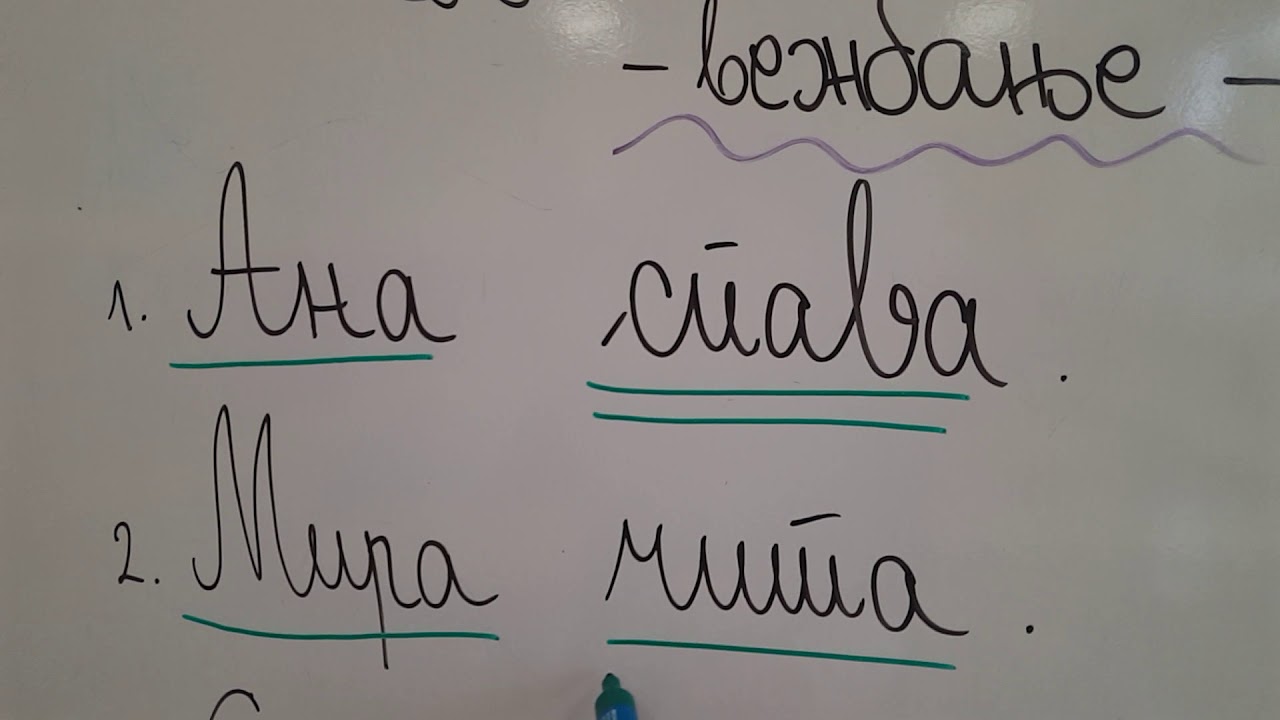 - вежбање -
1. Ана спава.
2. Мира чита.